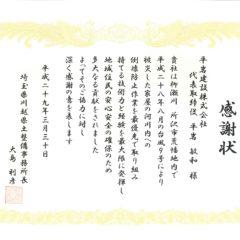 感謝状
平岩建設株式会社
代表取締役 平岩敏和 様
貴社は柳瀬川 所沢市荒幡地内で
平成二十八年八月の台風9号により
被災した家屋の河川内への
倒壊防止作業を最優先で取り組み
持てる技術力と経験を最大限に発揮し
地域住民の安心安全の確保のため
多大なる貢献をされました
よってそのご協力に対し
深く感謝の意を表します
平成二十九年三月三十日
埼玉県川越県土整備事務所長
大島 利彦